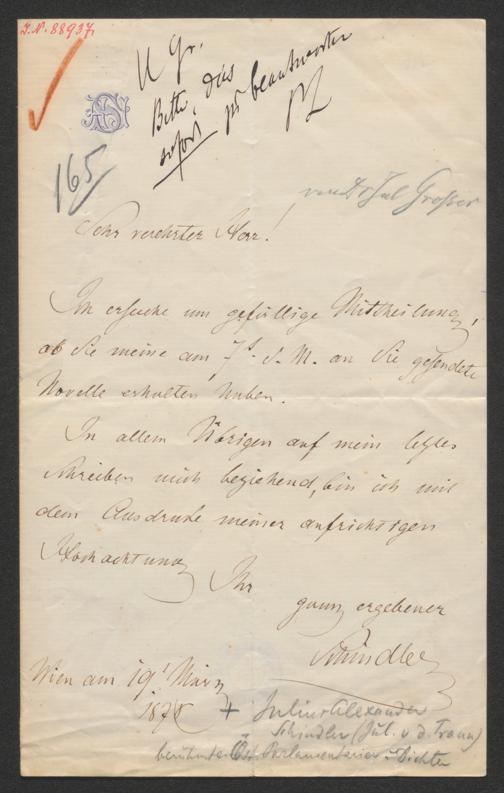 I.N. 88937
U Gr.
Bitte, das
sofort zu beantworten
165
von Dr Jul Grosser
Sehr verehrter Herr!
Ich ersuche um gefällige Mittheilung,
ob Sie meine am 7t. d. M. an Sie gesendete
Novelle erhalten haben.
In allem Übrigen auf mein letztes
Schreiben mich beziehend, bin ich mit
dem Ausdruke meiner aufrichtigen
Hochachtung
Ihr
ganz ergebener
Schindler
Wien am 19t März
+ Julius Alexander
Schindler (Jul. v. d. Traun)
berühmter Öst. Parlamentarier u. Dichter